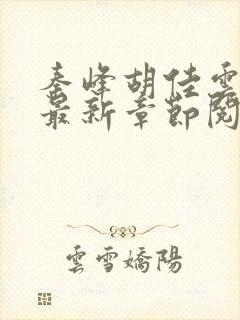 秦峰胡佳雲
最新章節閱
雲雪嬌陽